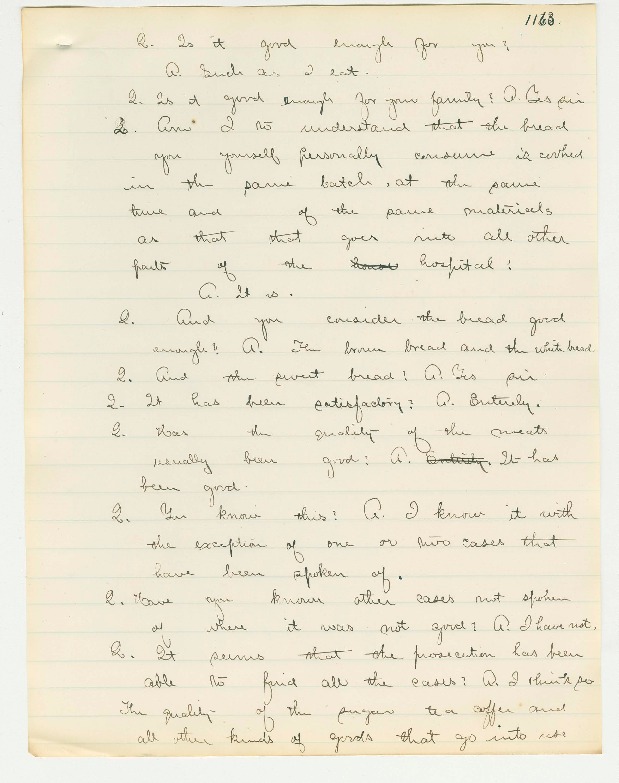 1163.
Q. Is it good enough for you?
A. Such as I eat.
Q. Is it good enough for your family? A. Yes sir
Q. Am I to understand that the bread
you yourself personally consume is cooked
in the same batch, at the same
time and of the same materials
as that that goes into all other
parts of the house hospital?
A. It is.
Q. And you consider the bread good
enough? A. The brown bread and the white bread
Q. And the sweet bread? A. Yes sir
Q. It has been satisfactory? A. Entirely.
Q. Has the quality of the meats
usually been good? A. Entirely. It has
been good.
Q. You know this? A. I know it with
the exception of one or two cases that
have been spoken of.
Q. Have you known other cases not spoken
of where it was not good? A. I have not.
Q. It seems that the prosecution has been
able to find all the cases? A. I think so
The quality of the sugar tea coffee and
all other kinds of goods that go into